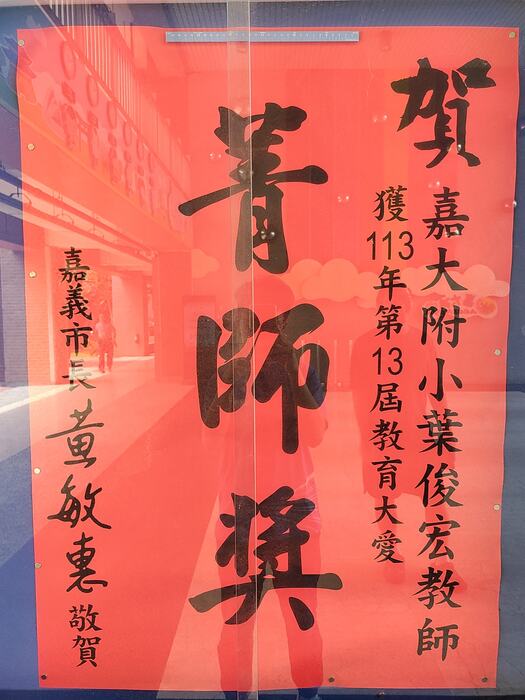 賀
嘉大附小葉俊宏教師
獲113年第13屆教育大愛
菁師獎
嘉義市長黃敏惠敬賀